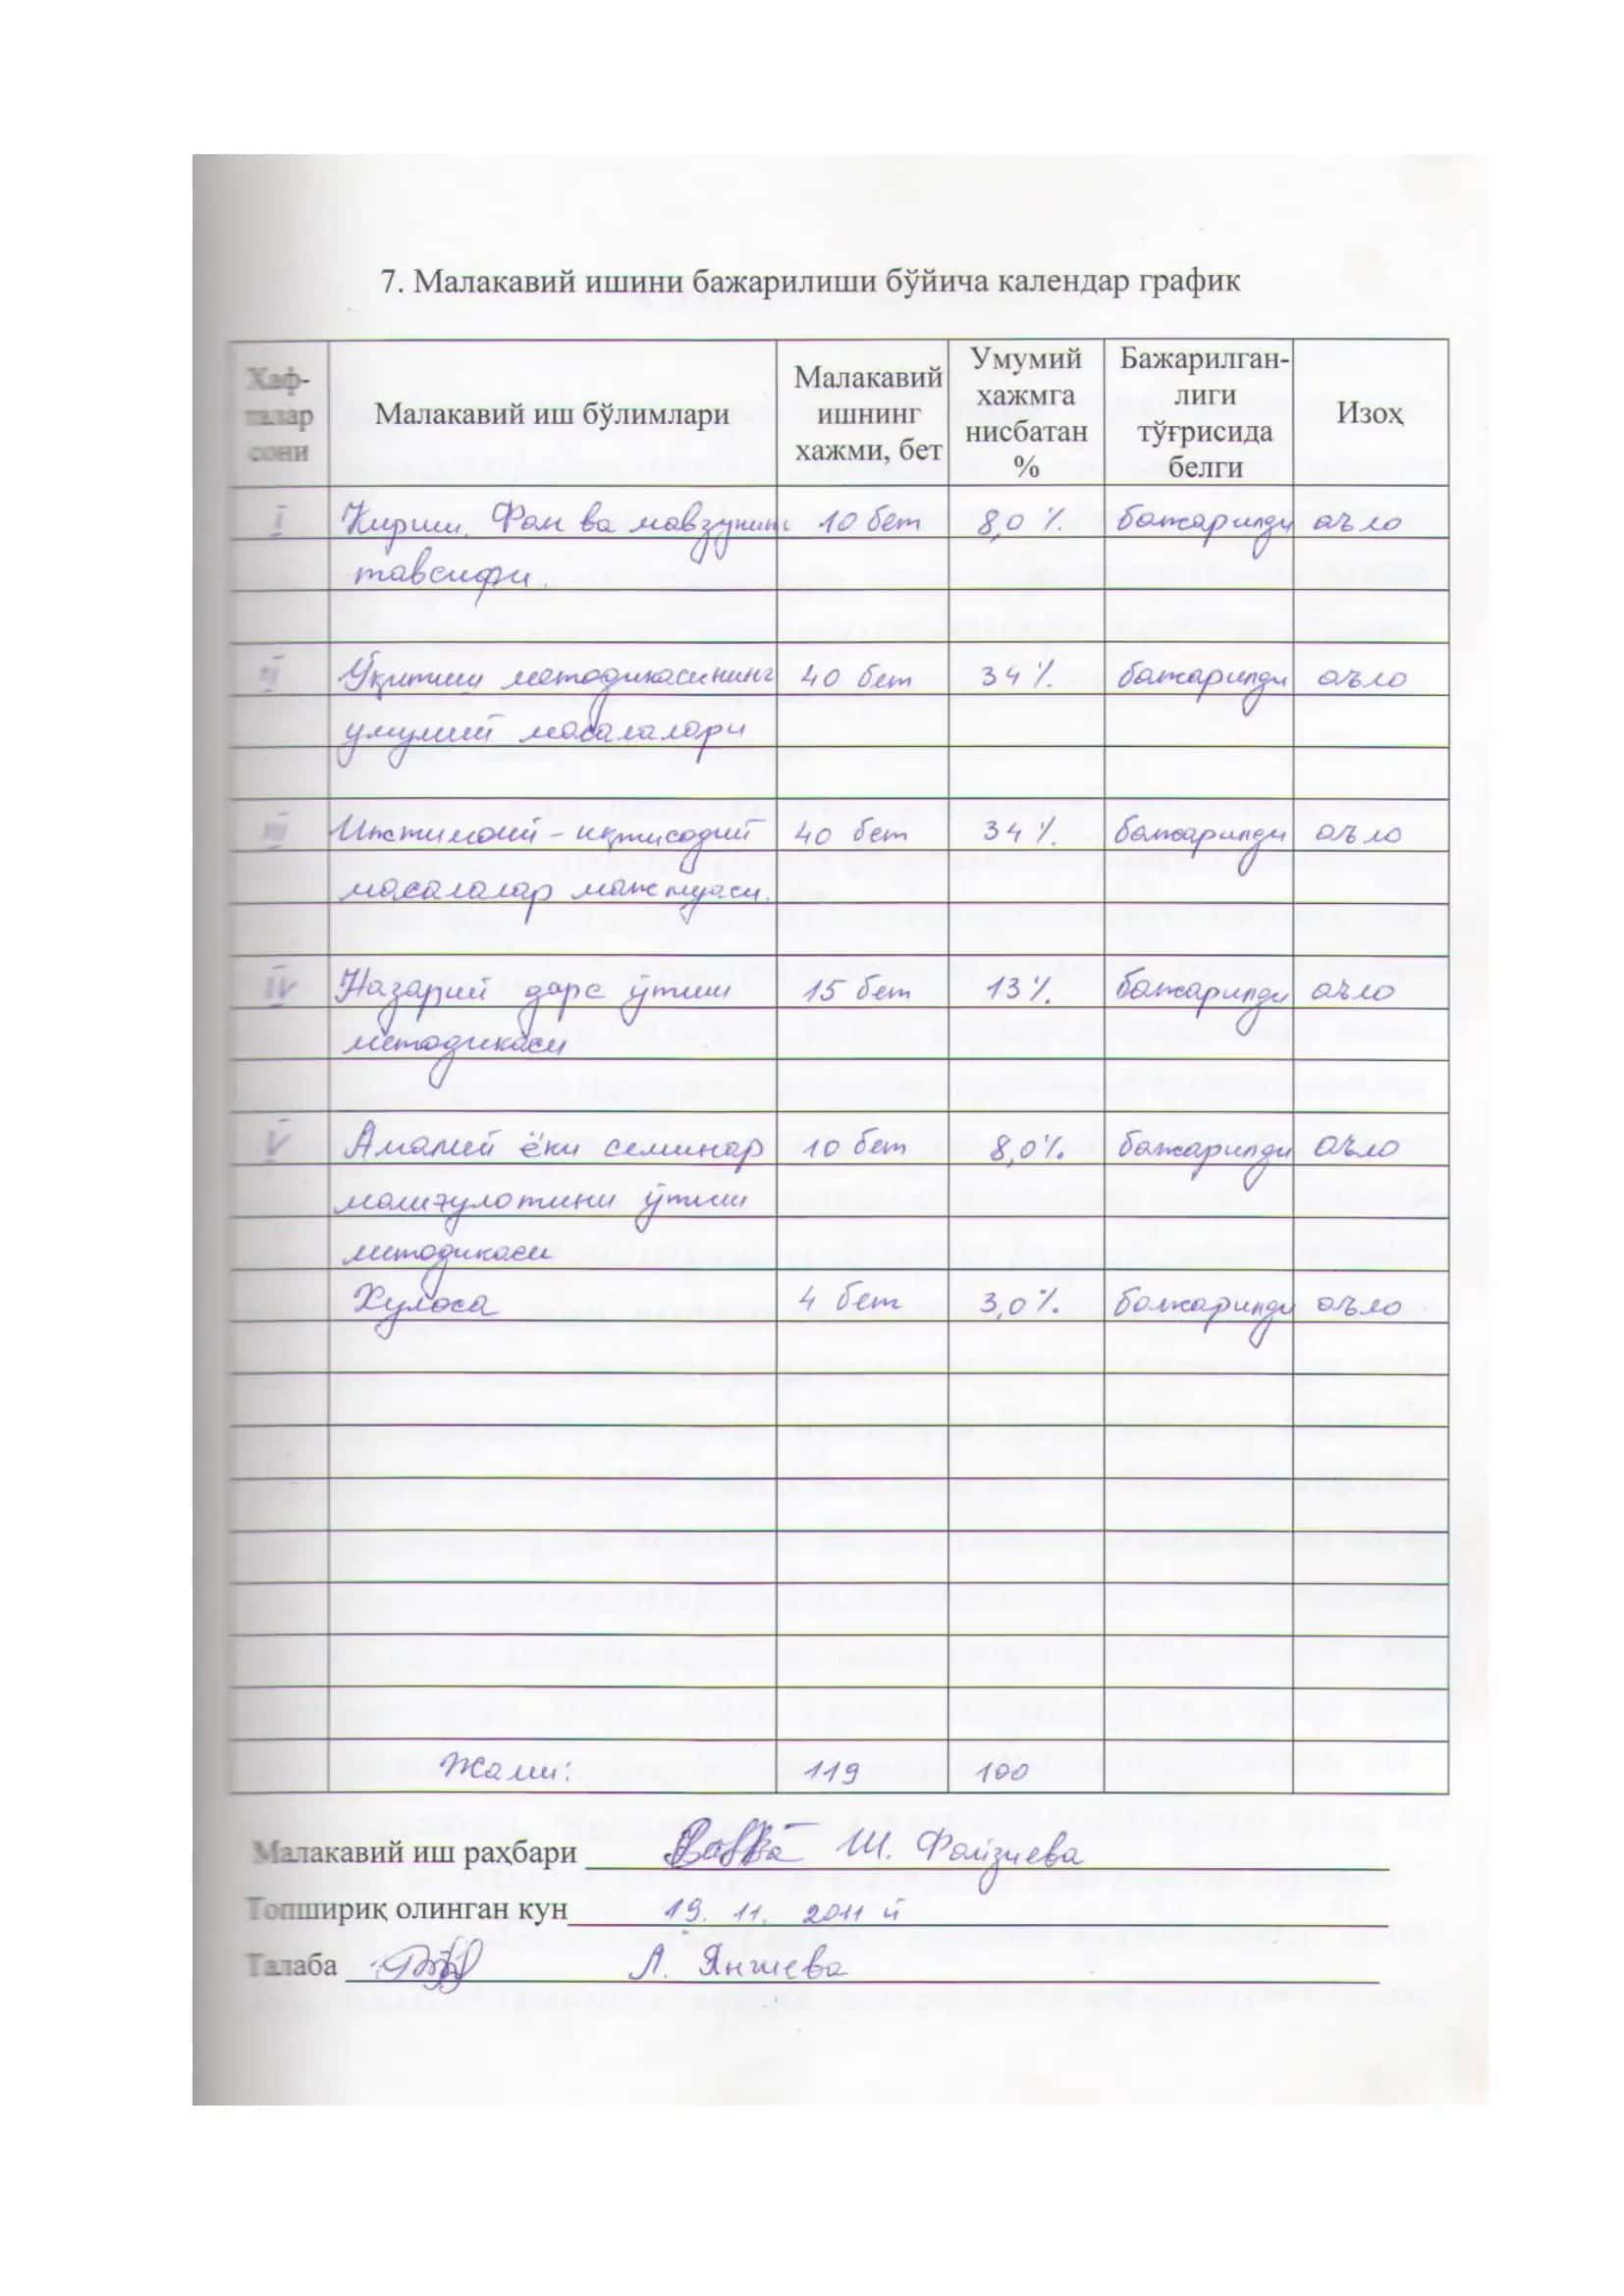 7. Малакавий ишини бажарилиши бўйича календар график
Хаф-
талар
сони
Малакавий иш бўлимлари
Малакавий
ишнинг
хажми, бет
Умумий
хажмга
нисбатан
%
Бажарилган-
лиги
тўғрисида
белги
Изоҳ
I Кириш. Фан ва мавзунинг 10 бет 8,0 % бажарилди аъло
тавсифи.
II Ўқитиш методикасининг 40 бет 34 % бажарилди аъло
умумий масалалари
III Ижтимоий - иқтисодий 40 бет 34 % бажарилди аъло
масалалар мажмуаси.
IV Назарий дарс ўтиш 15 бет 13 % бажарилди аъло
методикаси
V Амалий ёки семинар 10 бет 8,0 % бажарилди аъло
машғулотини ўтиш
методикаси
Хулоса 4 бет 3,0 % бажарилди аъло
Жами: 119 100
Малакавий иш раҳбари Ш. Файзиева
Топшириқ олинган кун 19. 11. 2011 й
Талаба А. Янгиева